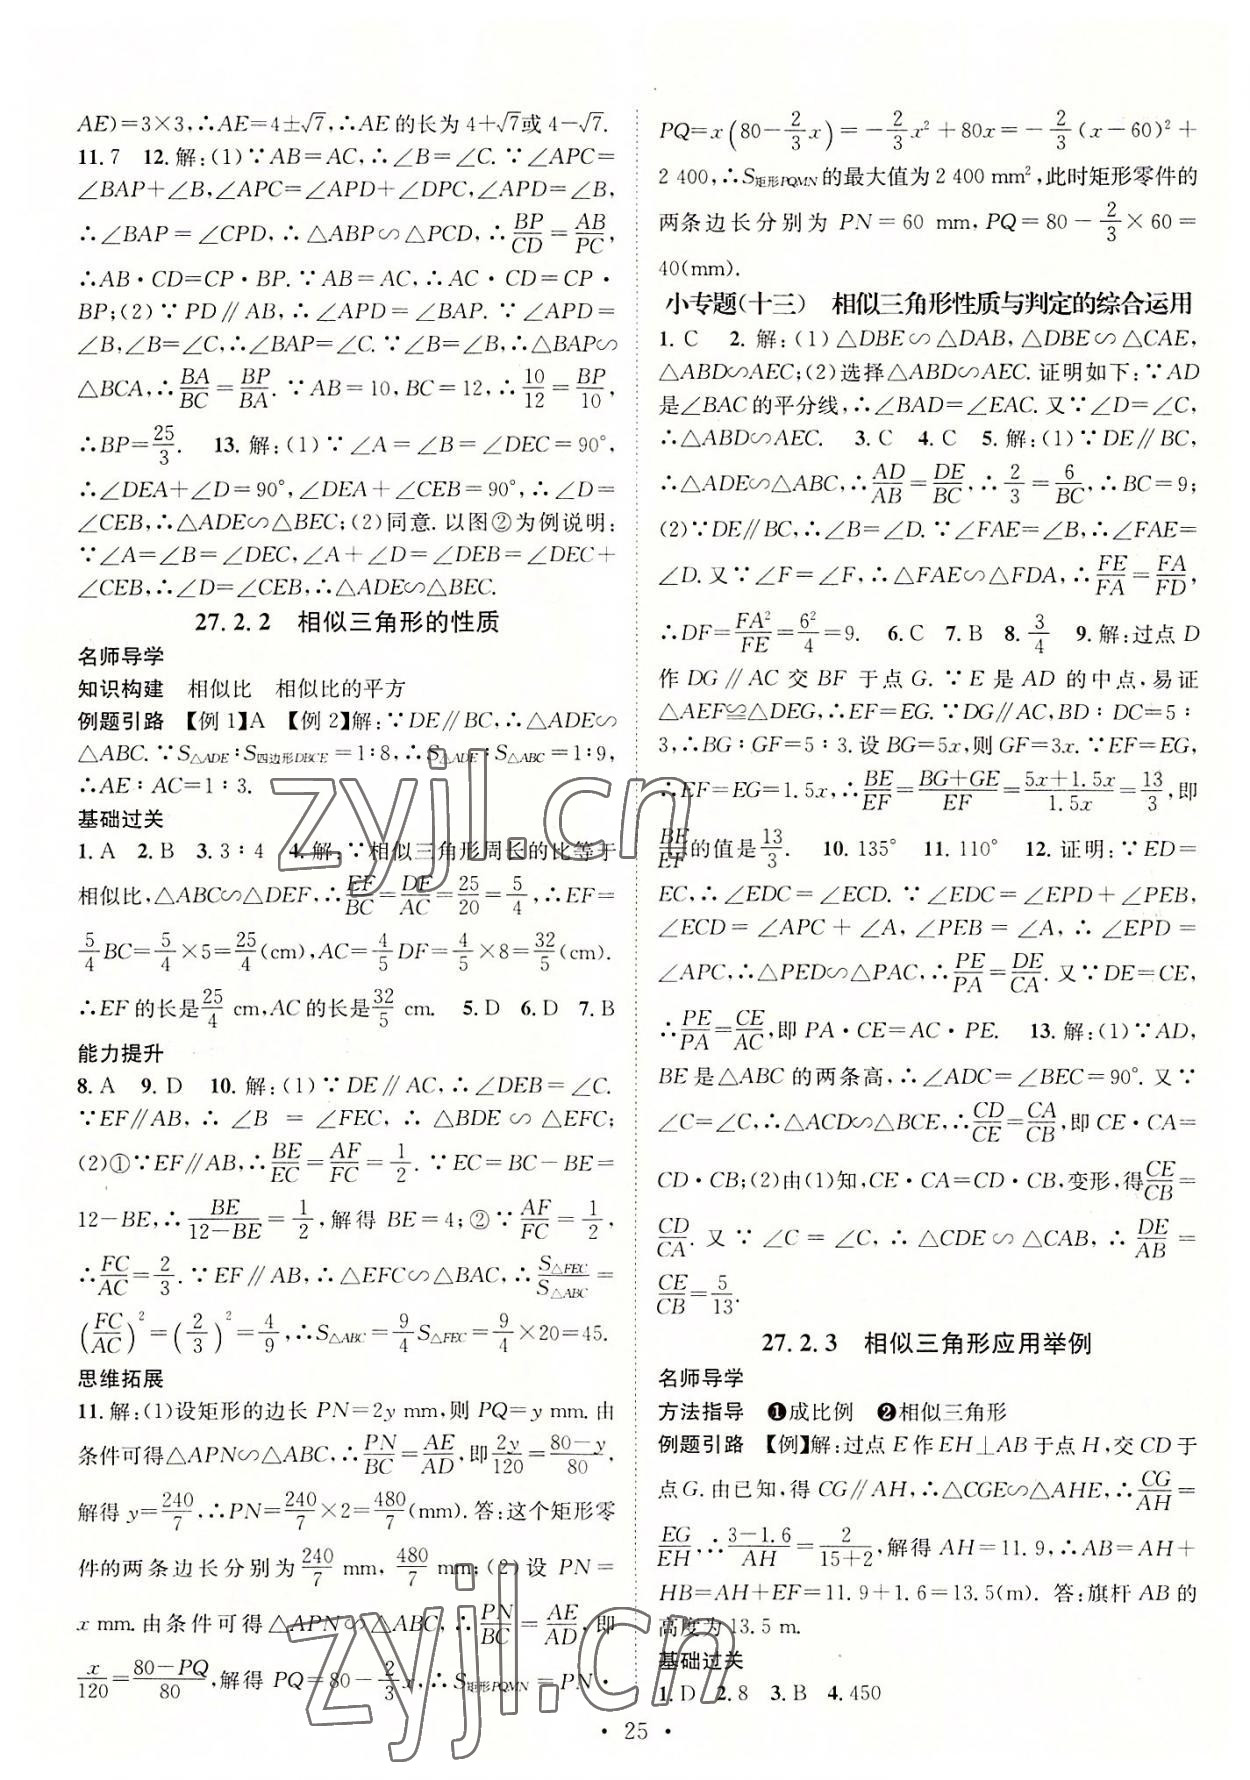 AE)=3×3,∴AE=4±√7,∴AE的长为4+√7或4-√7.
11.7 12.解:(1)∵AB=AC,∴∠B=∠C.∵∠APC=
∠BAP+∠B,∠APC=∠APD+∠DPC,∠APD=∠B,
∴∠BAP=∠CPD,∴△ABP∽△PCD,∴BP/CD=AB/PC,
∴AB·CD=CP·BP.∵AB=AC,∴AC·CD=CP·
BP;(2)∵PD∥AB,∴∠APD=∠BAP.∵∠APD=
∠B,∠B=∠C,∴∠BAP=∠C.∵∠B=∠B,∴△BAP∽
△BCA,∴BA/BC=BP/BA.∵AB=10,BC=12,∴10/12=BP/10,
∴BP=25/3. 13.解:(1)∵∠A=∠B=∠DEC=90°,
∴∠DEA+∠D=90°,∠DEA+∠CEB=90°,∴∠D=
∠CEB,∴△ADE∽△BEC;(2)同意.以图②为例说明:
∵∠A=∠B=∠DEC,∠A+∠D=∠DEB=∠DEC+
∠CEB,∴∠D=∠CEB,∴△ADE∽△BEC.
27.2.2 相似三角形的性质
名师导学
知识构建 相似比 相似比的平方
例题引路 【例1】A 【例2】解:∵DE∥BC,∴△ADE∽
△ABC.∵S△ADE∶S四边形DBCE=1∶8,∴S△ADE∶S△ABC=1∶9,
∴AE∶AC=1∶3.
基础过关
1.A 2.B 3.3∶4 4.解:∵相似三角形周长的比等于
相似比,△ABC∽△DEF,∴EF/BC=DF/AC=25/20=5/4,∴EF=
5/4BC=5/4×5=25/4(cm),AC=4/5DF=4/5×8=32/5(cm).
∴EF的长是25/4 cm,AC的长是32/5 cm. 5.D 6.D 7.B
能力提升
8.A 9.D 10.解:(1)∵DE∥AC,∴∠DEB=∠C.
∵EF∥AB,∴∠B=∠FEC,∴△BDE∽△EFC;
(2)①∵EF∥AB,∴BE/EC=AF/FC=1/2.∵EC=BC-BE=
12-BE,∴BE/(12-BE)=1/2,解得BE=4;②∵AF/FC=1/2,
∴FC/AC=2/3.∵EF∥AB,∴△EFC∽△BAC,∴S△FEC/S△ABC=
(FC/AC)²=(2/3)²=4/9,∴S△ABC=9/4S△FEC=9/4×20=45.
思维拓展
11.解:(1)设矩形的边长PN=2y mm,则PQ=y mm.由
条件可得△APN∽△ABC,∴PN/BC=AE/AD,即2y/120=(80-y)/80,
解得y=240/7,∴PN=240/7×2=480/7(mm).答:这个矩形零
件的两条边长分别为240/7 mm,480/7 mm;(2)设PN=
x mm.由条件可得△APN∽△ABC,∴PN/BC=AE/AD,即
x/120=(80-PQ)/80,解得PQ=80-2/3x,∴S矩形PQMN=PN·
PQ=x(80-2/3x)=-2/3x²+80x=-2/3(x-60)²+
2 400,∴S矩形PQMN的最大值为2 400 mm²,此时矩形零件的
两条边长分别为PN=60 mm,PQ=80-2/3×60=
40(mm).
小专题(十三) 相似三角形性质与判定的综合运用
1.C 2.解:(1)△DBE∽△DAB,△DBE∽△CAE,
△ABD∽AEC;(2)选择△ABD∽AEC.证明如下:∵AD
是∠BAC的平分线,∴∠BAD=∠EAC.又∵∠D=∠C,
∴△ABD∽AEC. 3.C 4.C 5.解:(1)∵DE∥BC,
∴△ADE∽△ABC,∴AD/AB=DE/BC,∴2/3=6/BC,∴BC=9;
(2)∵DE∥BC,∴∠B=∠D.∵∠FAE=∠B,∴∠FAE=
∠D.又∵∠F=∠F,∴△FAE∽△FDA,∴FE/FA=FA/FD,
∴DF=FA²/FE=6²/4=9. 6.C 7.B 8.3/4 9.解:过点D
作DG∥AC交BF于点G.∵E是AD的中点,易证
△AEF≌△DEG,∴EF=EG.∵DG∥AC,BD∶DC=5∶
3,∴BG∶GF=5∶3.设BG=5x,则GF=3x.∵EF=EG,
∴EF=EG=1.5x,∴BE/EF=(BG+GE)/EF=(5x+1.5x)/1.5x=13/3,即
BE/EF的值是13/3. 10.135° 11.110° 12.证明:∵ED=
EC,∴∠EDC=∠ECD.∵∠EDC=∠EPD+∠PEB,
∠ECD=∠APC+∠A,∠PEB=∠A,∴∠EPD=
∠APC,∴△PED∽△PAC,∴PE/PA=DE/CA.又∵DE=CE,
∴PE/PA=CE/AC,即PA·CE=AC·PE. 13.解:(1)∵AD,
BE是△ABC的两条高,∴∠ADC=∠BEC=90°.又∵
∠C=∠C,∴△ACD∽△BCE,∴CD/CE=CA/CB,即CE·CA=
CD·CB;(2)由(1)知,CE·CA=CD·CB,变形,得CE/CB=
CD/CA.又∵∠C=∠C,∴△CDE∽△CAB,∴DE/AB=
CE/CB=5/13.
27.2.3 相似三角形应用举例
名师导学
方法指导 ❶成比例 ❷相似三角形
例题引路 【例】解:过点E作EH⊥AB于点H,交CD于
点G.由已知,得CG∥AH,∴△CGE∽△AHE,∴CG/AH=
EG/EH,∴(3-1.6)/AH=2/(15+2),解得AH=11.9,∴AB=AH+
HB=AH+EF=11.9+1.6=13.5(m).答:旗杆AB的
高度为13.5 m.
基础过关
1.D 2.8 3.B 4.450
·25·
zyjl.cn
zyjl.cn